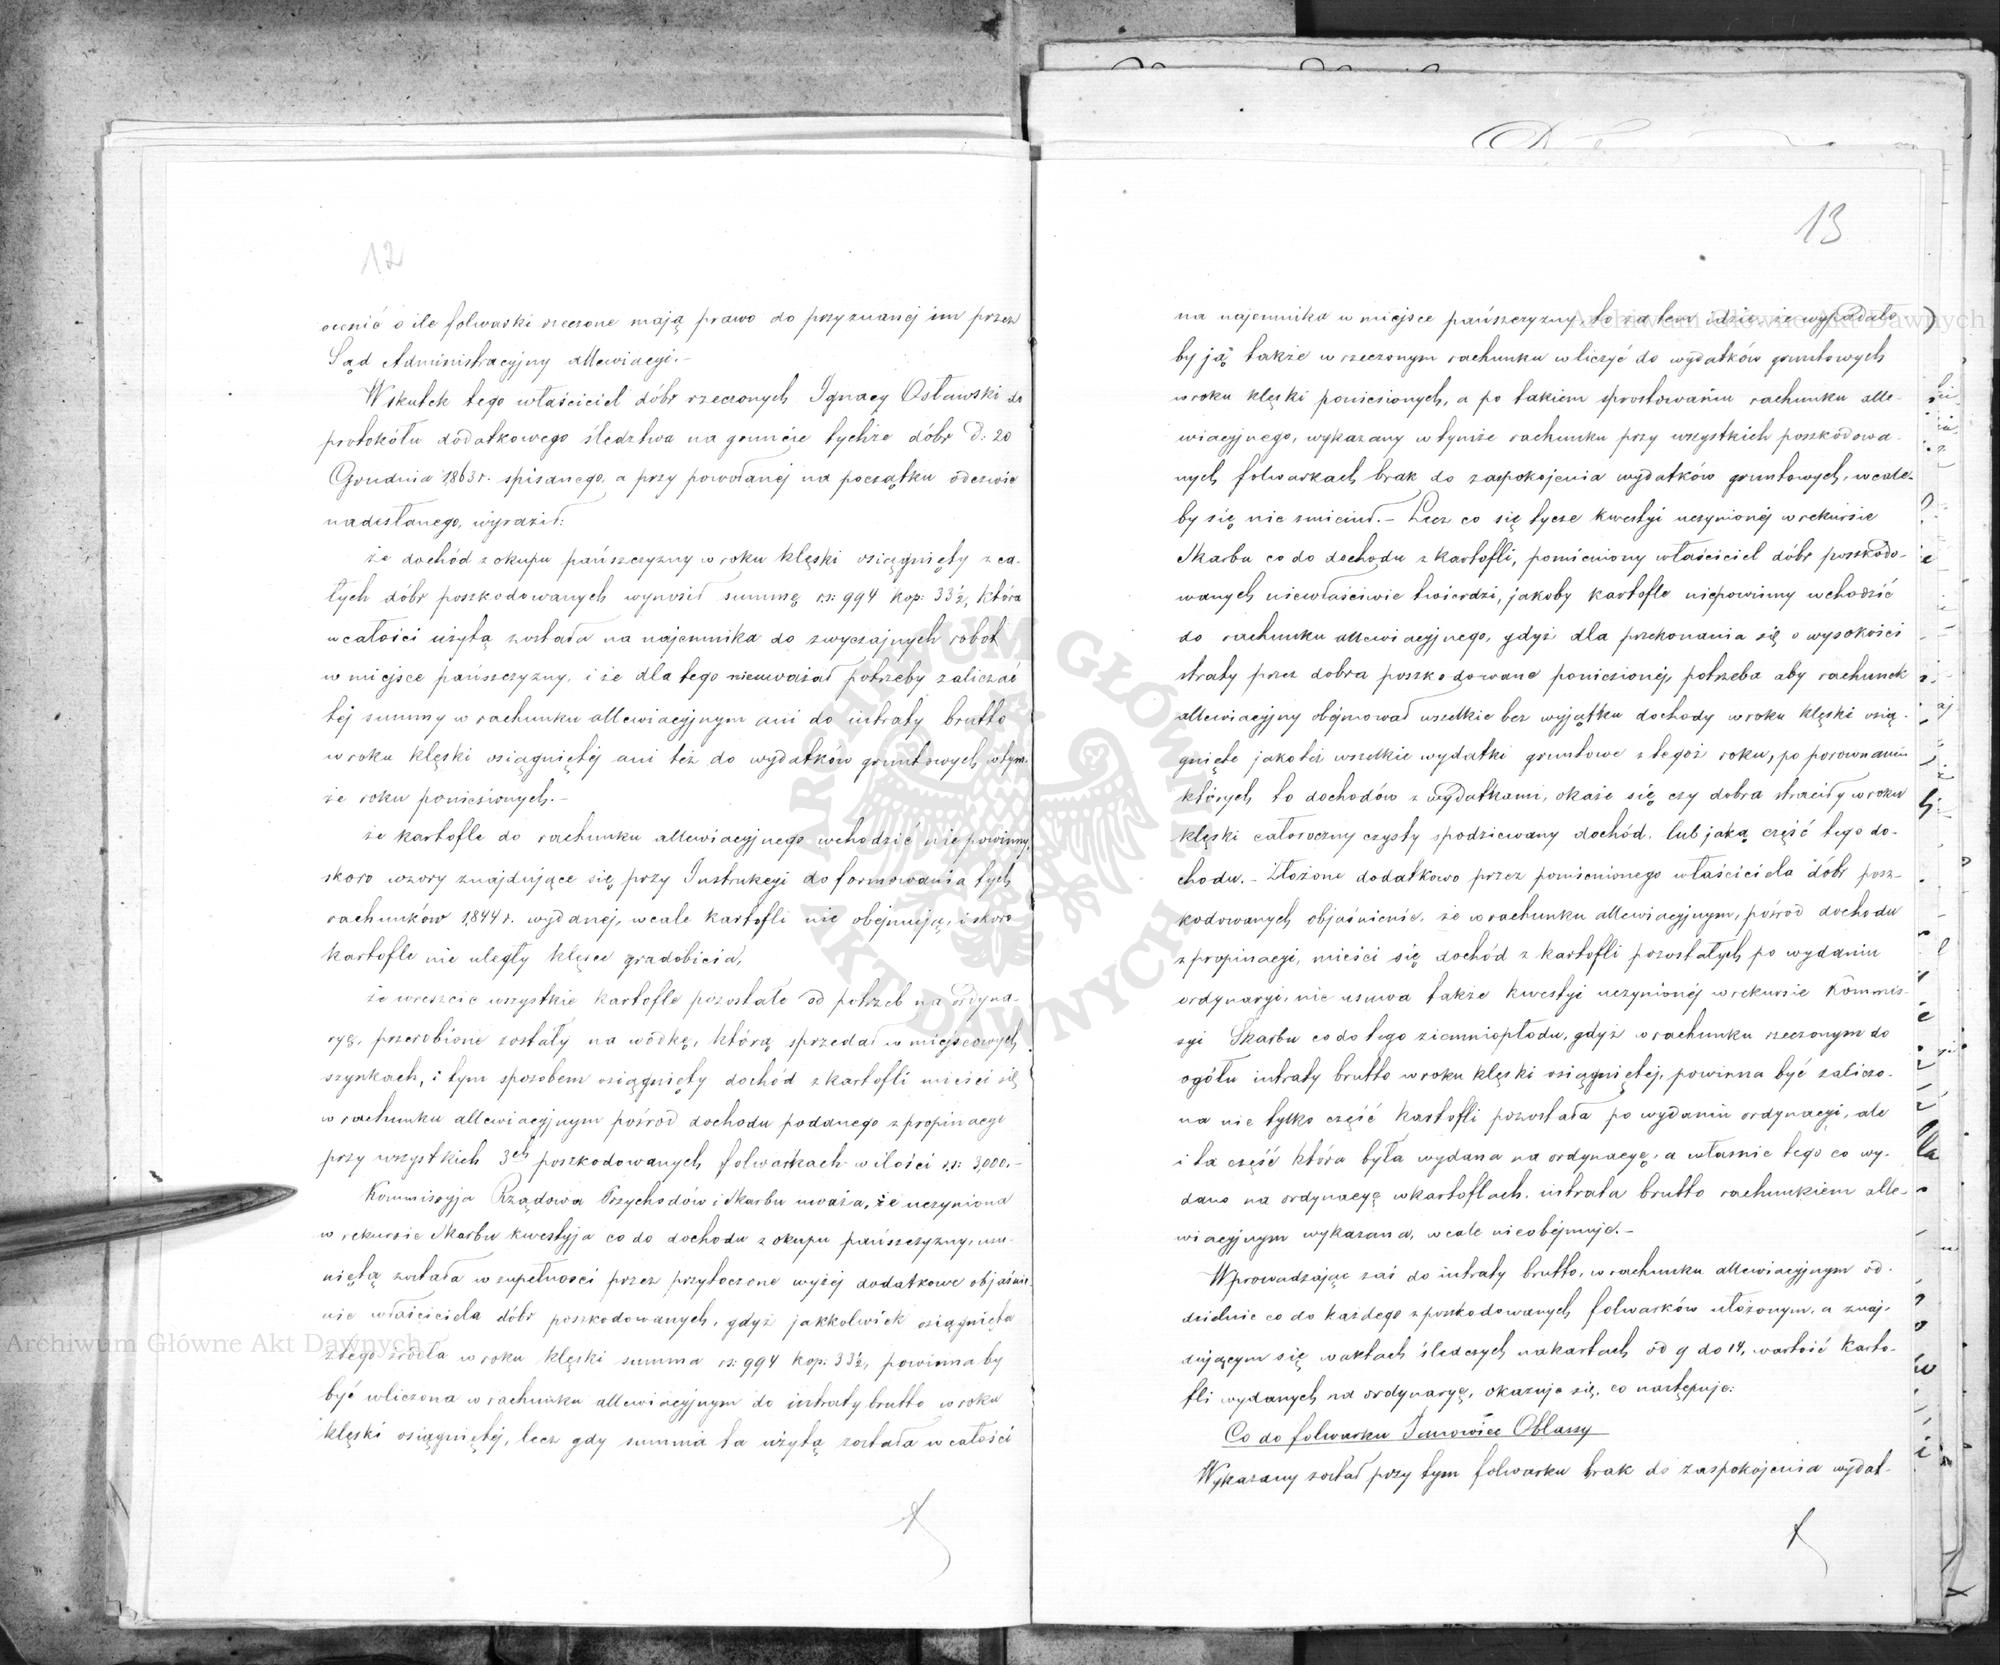 12
ocenić o ile folwarki rzeczone mają prawo do przyznanéj im przez
Sąd Administracyjny allewiacyi.-
Wskutek tego właściciel dóbr rzeczonych Ignacy Osławski do
protokółu dodatkowego śledztwa na gruncie tychże dóbr d: 20
Grudnia 1863 r. spisanego, a przy powołanéj na początku odezwie
nadesłanego, wyraził:
że dochód z okupu pańszczyzny w roku klęski osiągnięty z ca-
łych dóbr poszkodowanych wynosił summę rs: 994 kop: 33½, która
w całości użytą została na najemnika do zwyczajnych robot
w miejsce pańszczyzny, i że dla tego nieuważał potrzeby zaliczać
téj summy w rachunku allewiacyjnym ani do intraty brutto
w roku klęski osiągniętéj ani téż do wydatków gruntowych w tym-
że roku poniesionych.-
że kartofle do rachunku allewiacyjnego wchodzić nie powinny,
skoro wzory znajdujące się przy Instrukcyi do formowania tych
rachunków 1844 r. wydanéj, wcale kartofli nie obejmują, i skoro
kartofle nie uległy klęsce gradobicia,
że wreszcie wszystkie kartofle pozostałe od potrzeb na ordyna-
ryę, przerobione zostały na wódkę, którą sprzedał w miejscowych
szynkach, i tym sposobem osiągnięty dochód z kartofli mieści się
w rachunku allewiacyjnym pośród dochodu podanego z propinacyi
przy wszystkich 3ch poszkodowanych folwarkach w ilości rs: 3,000.-
Kommissyja Rządowa Przychodów i Skarbu uważa, że uczyniona
w rekursie Skarbu kwestyja co do dochodu z okupu pańszczyzny, usu-
niętą została w zupełności przez przytoczone wyżéj dodatkowe objaśnie-
nie właściciela dóbr poszkodowanych, gdyż jakkolwiek osiągnięta
z tego źródła w roku klęski summa rs: 994 kop: 33½, powinna by
być wliczona w rachunku allewiacyjnym do intraty brutto w roku
klęski osiągniętéj, lecz gdy summa ta użytą została w całości
13
na najemnika w miejsce pańszczyzny, to za tem idzie, że wypadało
by ją także w rzeczonym rachunku wliczyć do wydatków gruntowych
w roku klęski poniesionych, a po takiem sprostowaniu rachunku alle-
wiacyjnego, wykazany w tymże rachunku przy wszystkich poszkodowa-
nych folwarkach brak do zaspokojenia wydatków gruntowych, wcale-
by się nie zmienił.- Lecz co się tycze kwestyi uczynionéj w rekursie
Skarbu co do dochodu z kartofli, pomieniony właściciel dóbr poszkodo-
wanych niewłaściwie twierdzi, jakoby kartofle niepowinny wchodzić
do rachunku allewiacyjnego, gdyż dla przekonania się o wysokości
straty przez dobra poszkodowane poniesionéj, potrzeba aby rachunek
allewiacyjny obejmował wszelkie bez wyjątku dochody w roku klęski osią-
gnięte jakoteż wszelkie wydatki gruntowe z tegoż roku, po porownaniu
których to dochodów z wydatkami, okaże się czy dobra straciły w roku
klęski całoroczny czysty spodziewany dochód, lub jaką część tego do-
chodu.- Złożone dodatkowo przez pomienionego właściciela dóbr posz-
kodowanych objaśnienie, że w rachunku allewiacyjnym, pośrod dochodu
z propinacyi, mieści się dochód z kartofli pozostałych po wydaniu
ordynaryi, nie usuwa także kwestyi uczynionéj w rekursie Kommis-
syi Skarbu co do tego ziemniopłodu, gdyż w rachunku rzeczonym do
ogółu intraty brutto w roku klęski osiągniętéj, powinna być zaliczo-
na nie tylko część kartofli pozostała po wydaniu ordynacyi, ale
i ta część która była wydana na ordynacyę, a własnie tego co wy-
dano na ordynacyę w kartoflach, intrata brutto rachunkiem alle-
wiacyjnym wykazana, wcale nieobéjmuje.-
Wprowadzając zaś do intraty brutto, w rachunku allewiacyjnym od-
dzielnie co do każdego z poszkodowanych folwarków ułożonym, a znaj-
dującym się w aktach śledczych na kartach od 9 do 14, wartość karto-
fli wydanych na ordynaryę, okazuje się, co następuje:
Co do folwarku Janowiec Oblassy
Wykazany został przy tym folwarku brak do zaspokojenia wydat-
Archiwum Główne Akt Dawnych
Archiwum Główne Akt Dawnych
ARCHIWUM GŁÓWNE AKT DAWNYCH